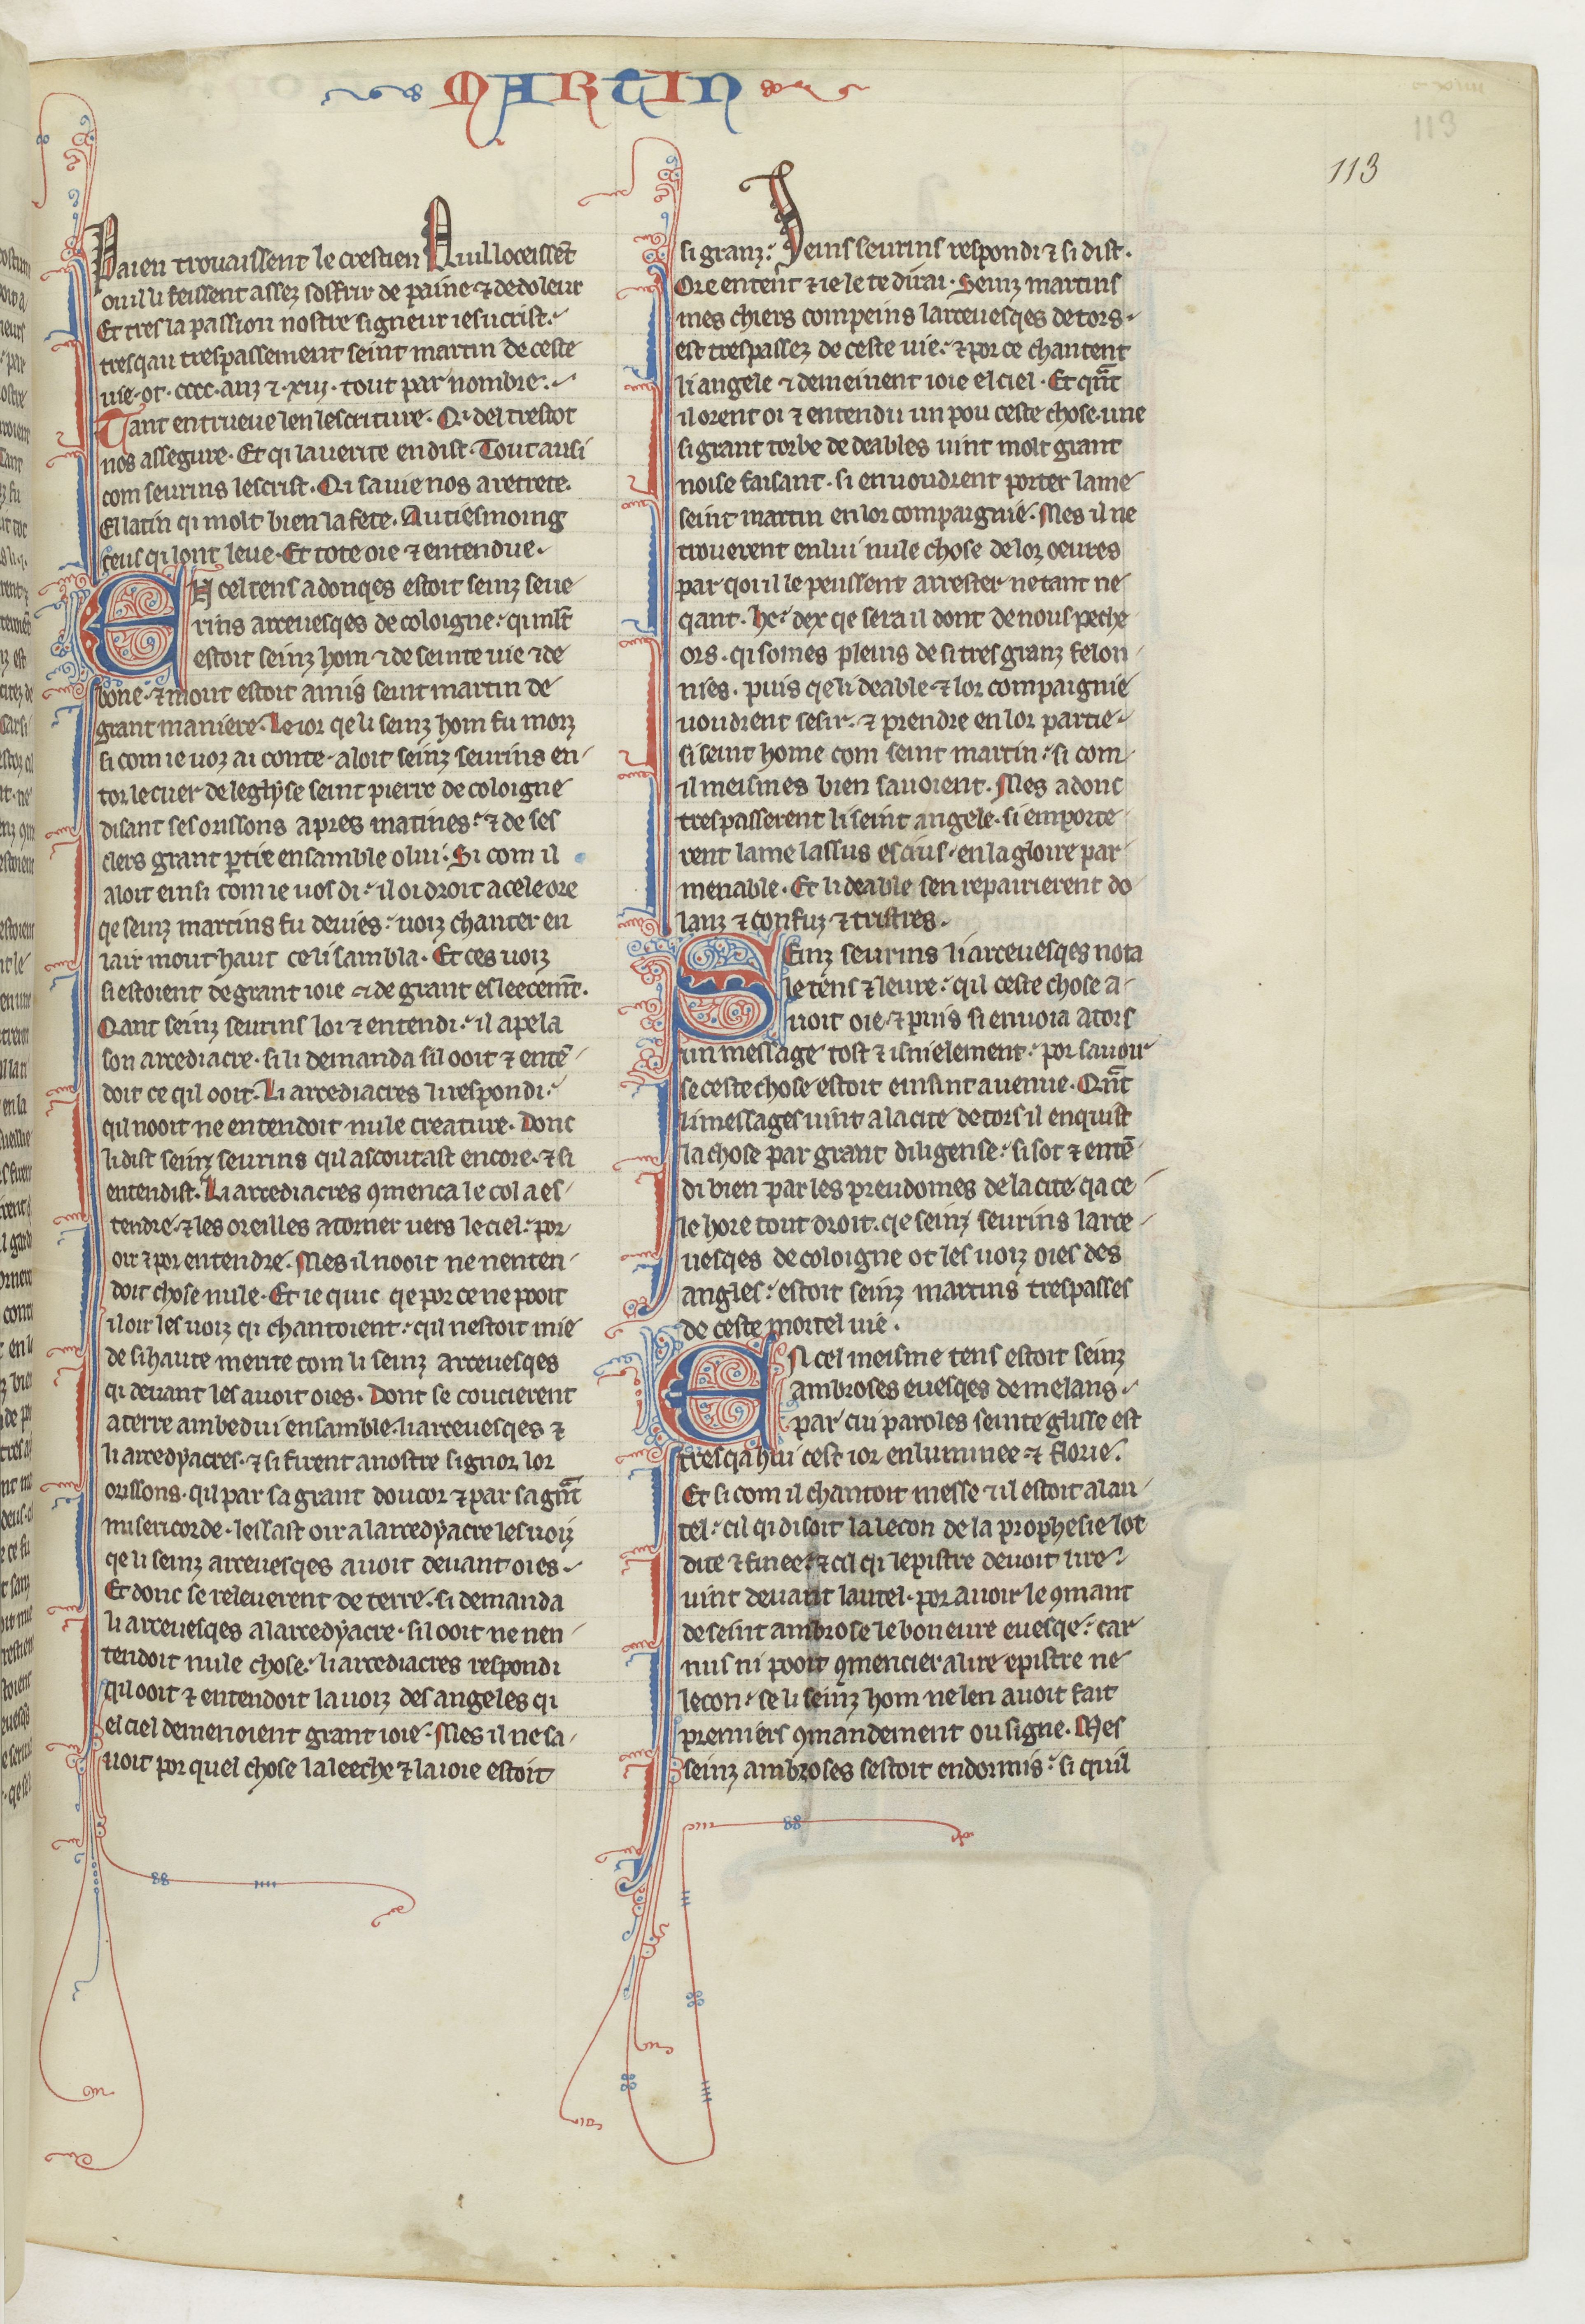 MARTIN
113
Paien trouaissent le crestien Quil loceissēt
ou il li feissent assez soffrir de paine ⁊ de doleur
Et tres la passion nostre signeur iesucrist.
tresqau trespassement seint martin de ceste
uie. ot. cccc. anz ⁊. xiij. tout par nombre.
Tant en trueue len lescriture. Qi del trestot
nos assegure. Et qi la uerite en dist. Tout ausi
com seurins lescrist. Qi sa uie nos a retrete.
El latin qi molt bien la fete. Au tiesmoing
ceus qi lont leue. Et tote oie ⁊ entendue.
En cel tens adonqes estoit seinz seue
rins arceuesqes de coloigne. qi mlt̄
estoit seinz hom ⁊ de seinte uie ⁊ de
bone. ⁊ mout estoit amis seint martin de
grant maniere. Le ior qe li seinz hom fu morz
si com ie uoz ai conte. aloit seinz seurins en
tor le cuer de leglyse seint pierre de coloigne
disant ses orissons apres matines. ⁊ de ses
clers grant ptie ensamble o lui. Si com il
aloit einsi com ie uos di. il oi droit a cele ore
qe seinz martins fu deuies. uoiz chanter en
lair mout haut ce li sambla. Et ces uoiz
si estoient de grant ioie ⁊ de grant esleecemt̄.
Qant seinz seurins loi ⁊ entendi. il apela
son arcediacre. si li demanda sil ooit ⁊ entē
doit ce qil ooit. Li arcediacres li respondi.
qil nooit ne entendoit nule creature. Donc
li dist seinz seurins qil ascoutast encore. ⁊ si
entendist. Li arcediacres 9menca le col a es
tendre. ⁊ les oreilles a torner uers le ciel. por
oir ⁊ por entendre. Mes il nooit ne nenten
doit chose nule. Et ie quic qe por ce ne pooit
il oir les uoiz qi chantoient. qil nestoit mie
de si haute merite com li seinz arceuesqes
qi deuant les auoit oies. Dont se coucierent
a terre ambedui ensamble. li arceuesqes ⁊
li arcedyacres. ⁊ si firent a nostre signor lor
orissons. qil par sa grant doucor ⁊ par sa gnt̄
misericorde. lessast oir a larcedyacre les uoiz
qe li seinz arceuesqes auoit deuant oies.
Et donc se releuerent de terre. si demanda
li arceuesqes a larcedyacre. sil ooit ne nen
tendoit nule chose. li arcediacres respondi
qil ooit ⁊ entendoit la uoiz des angeles qi
el ciel demenoient grant ioie. Mes il ne sa
uoit por quel chose la leeche ⁊ la ioie estoit
si granz. Seins seurins respondi ⁊ si dist.
Ore entent ⁊ ie le te dirai. Seinz martins
mes chiers compeins larceuesqes de tors.
est trespassez de ceste uie. ⁊ por ce chantent
li angele ⁊ demeinent ioie el ciel. Et qnt̄
il orent oi ⁊ entendu un pou ceste chose. une
si grant torbe de deables uint molt grant
noise faisant. si en uoudrent porter lame
seint martin en lor compaignie. Mes il ne
trouerent en lui nule chose de lor oeures
par qoi il le peussent arrester ne tant ne
qant. he. dex qe sera il dont de nous peche
ors. qi somes pleins de si tres granz felon
nies. puis qe li deable ⁊ lor compaignie
uoudrent sesir. ⁊ prendre en lor partie.
si seint home com seint martin. si com
il meismes bien sauoient. Mes adonc
trespasserent li seint angele. si emporte
rent lame lassus es cius. en la gloire par
menable. Et li deable sen repairierent do
lanz ⁊ confuz ⁊ tristres.
Seinz seurins li arceuesqes nota
le tens ⁊ leure. qil ceste chose a
uoit oie. ⁊ puis si enuoia a tors
un message tost ⁊ isnielement. por sauoir
se ceste chose estoit einsint auenue. Qnt̄
li messages uint a la cite de tors il enquist
la chose par grant diligense. si sot ⁊ entē
di bien par les preudomes de la cite. qa ce
le hore tout droit. qe seinz seurins larce
uesqes de coloigne ot les uoiz oies des
angles. estoit seinz martins trespasses
de ceste mortel uie.
En cel meisme tens estoit seinz
ambroses euesqes de melans.
par cui paroles seinte glisse est
tresqa hui cest ior enluminee ⁊ florie.
Et si com il chantoit messe ⁊ il estoit a lau
tel. cil qi disoit la lecon de la prophesie lot
dite ⁊ finee. ⁊ cil qi lepistre deuoit lire.
uint deuant lautel. por auoir le 9mant
de seint ambrose le boneure euesqe. car
nus ni pooit 9mencier a lire epistre ne
lecon. se li seinz hom ne len auoit fait
premiers 9mandement ou signe. Mes
seinz ambroses sestoit endormis. si quil